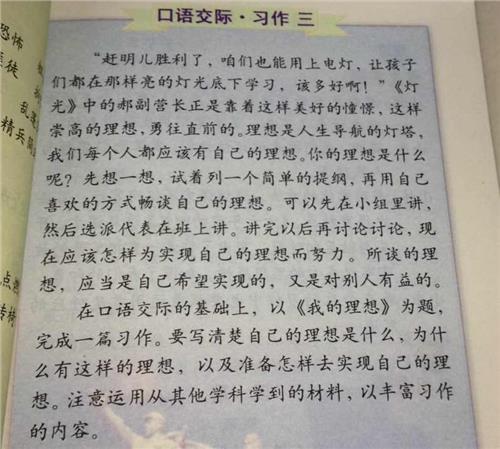 恐怖
徒
乱
精兵简
点
转椅
口语交际·习作 三
“赶明儿胜利了，咱们也能用上电灯，让孩子
们都在那样亮的灯光底下学习，该多好啊！”《灯
光》中的郝副营长正是靠着这样美好的憧憬，这样
崇高的理想，勇往直前的。理想是人生导航的灯塔，
我们每个人都应该有自己的理想。你的理想是什么
呢？先想一想，试着列一个简单的提纲，再用自己
喜欢的方式畅谈自己的理想。可以先在小组里讲，
然后选派代表在班上讲。讲完以后再讨论讨论，现
在应该怎样为实现自己的理想而努力。所谈的理
想，应当是自己希望实现的，又是对别人有益的。
在口语交际的基础上，以《我的理想》为题，
完成一篇习作。要写清楚自己的理想是什么，为什
么有这样的理想，以及准备怎样去实现自己的理
想。注意运用从其他学科学到的材料，以丰富习作
的内容。